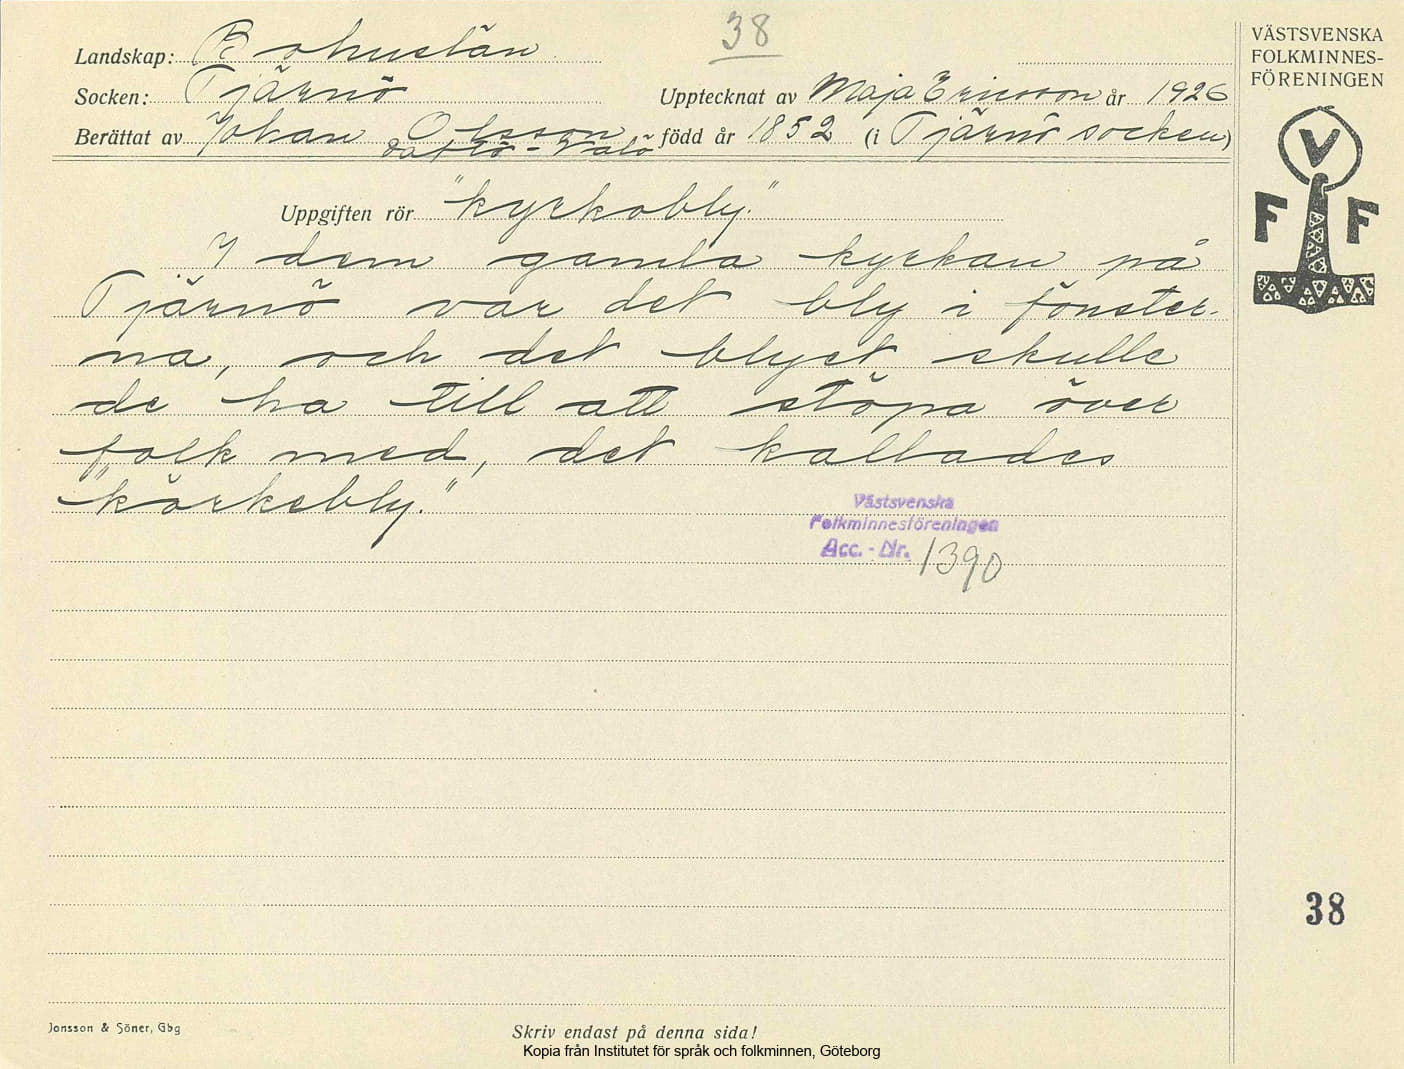 38
VÄSTSVENSKA
FOLKMINNES-
FÖRENINGEN
Landskap: Bohuslän
Socken: Tjärnö
Upptecknat av Maja Ericsson år 1926
Berättat av Johan Olsson född år 1852 (i Tjärnö socken)
V
F F
Uppgiften rör "kyrkobly."
I dem gamla kyrkan på
Tjärnö var det bly i fönster-
na, och det blyet skulle
de ha till att stöpa över
folk med, det kallades
"körkebly."
Västsvenska
Folkminnesföreningen
Acc. - Nr. 1390
38
Jonsson & Söner, Gbg
Skriv endast på denna sida!
Kopia från Institutet för språk och folkminnen, Göteborg